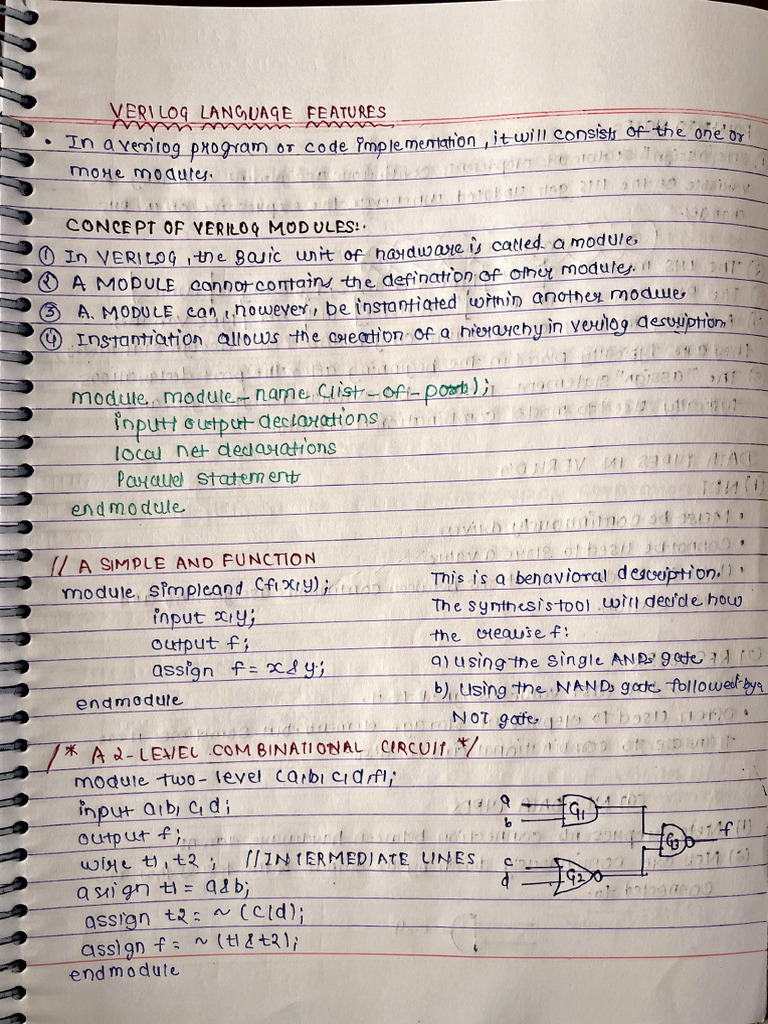 VERILOG LANGUAGE FEATURES
• In a verilog program or code implementation, it will consists of the one or
more modules.
CONCEPT OF VERILOG MODULES:.
① In VERILOG, the Basic unit of hardware is called a module.
② A MODULE cannot contains the defination of other modules.
③ A MODULE can, however, be instantiated within another module.
④ Instantiation allows the creation of a hierarchy in verilog description.
module module-name (list-of-port);
input/output declarations
local net declarations
Parallel statement
endmodule
// A SIMPLE AND FUNCTION
module simpleand (f,x,y);
input x,y;
output f;
assign f = x & y;
endmodule
This is a behavioral description.
The synthesis tool will decide how
the f:
a) using the single AND gate
b) Using the NAND gate followed by a
NOT gate
/* A 2-LEVEL COMBINATIONAL CIRCUIT */
module two-level (a,b,c,d,f);
input a,b,c,d;
output f;
wire t1, t2 ; // INTERMEDIATE LINES
assign t1 = a&b;
assign t2 = ~ (c|d);
assign f = ~ (t1 & t2);
endmodule
a
b
G1
c
d
G2
G3
f